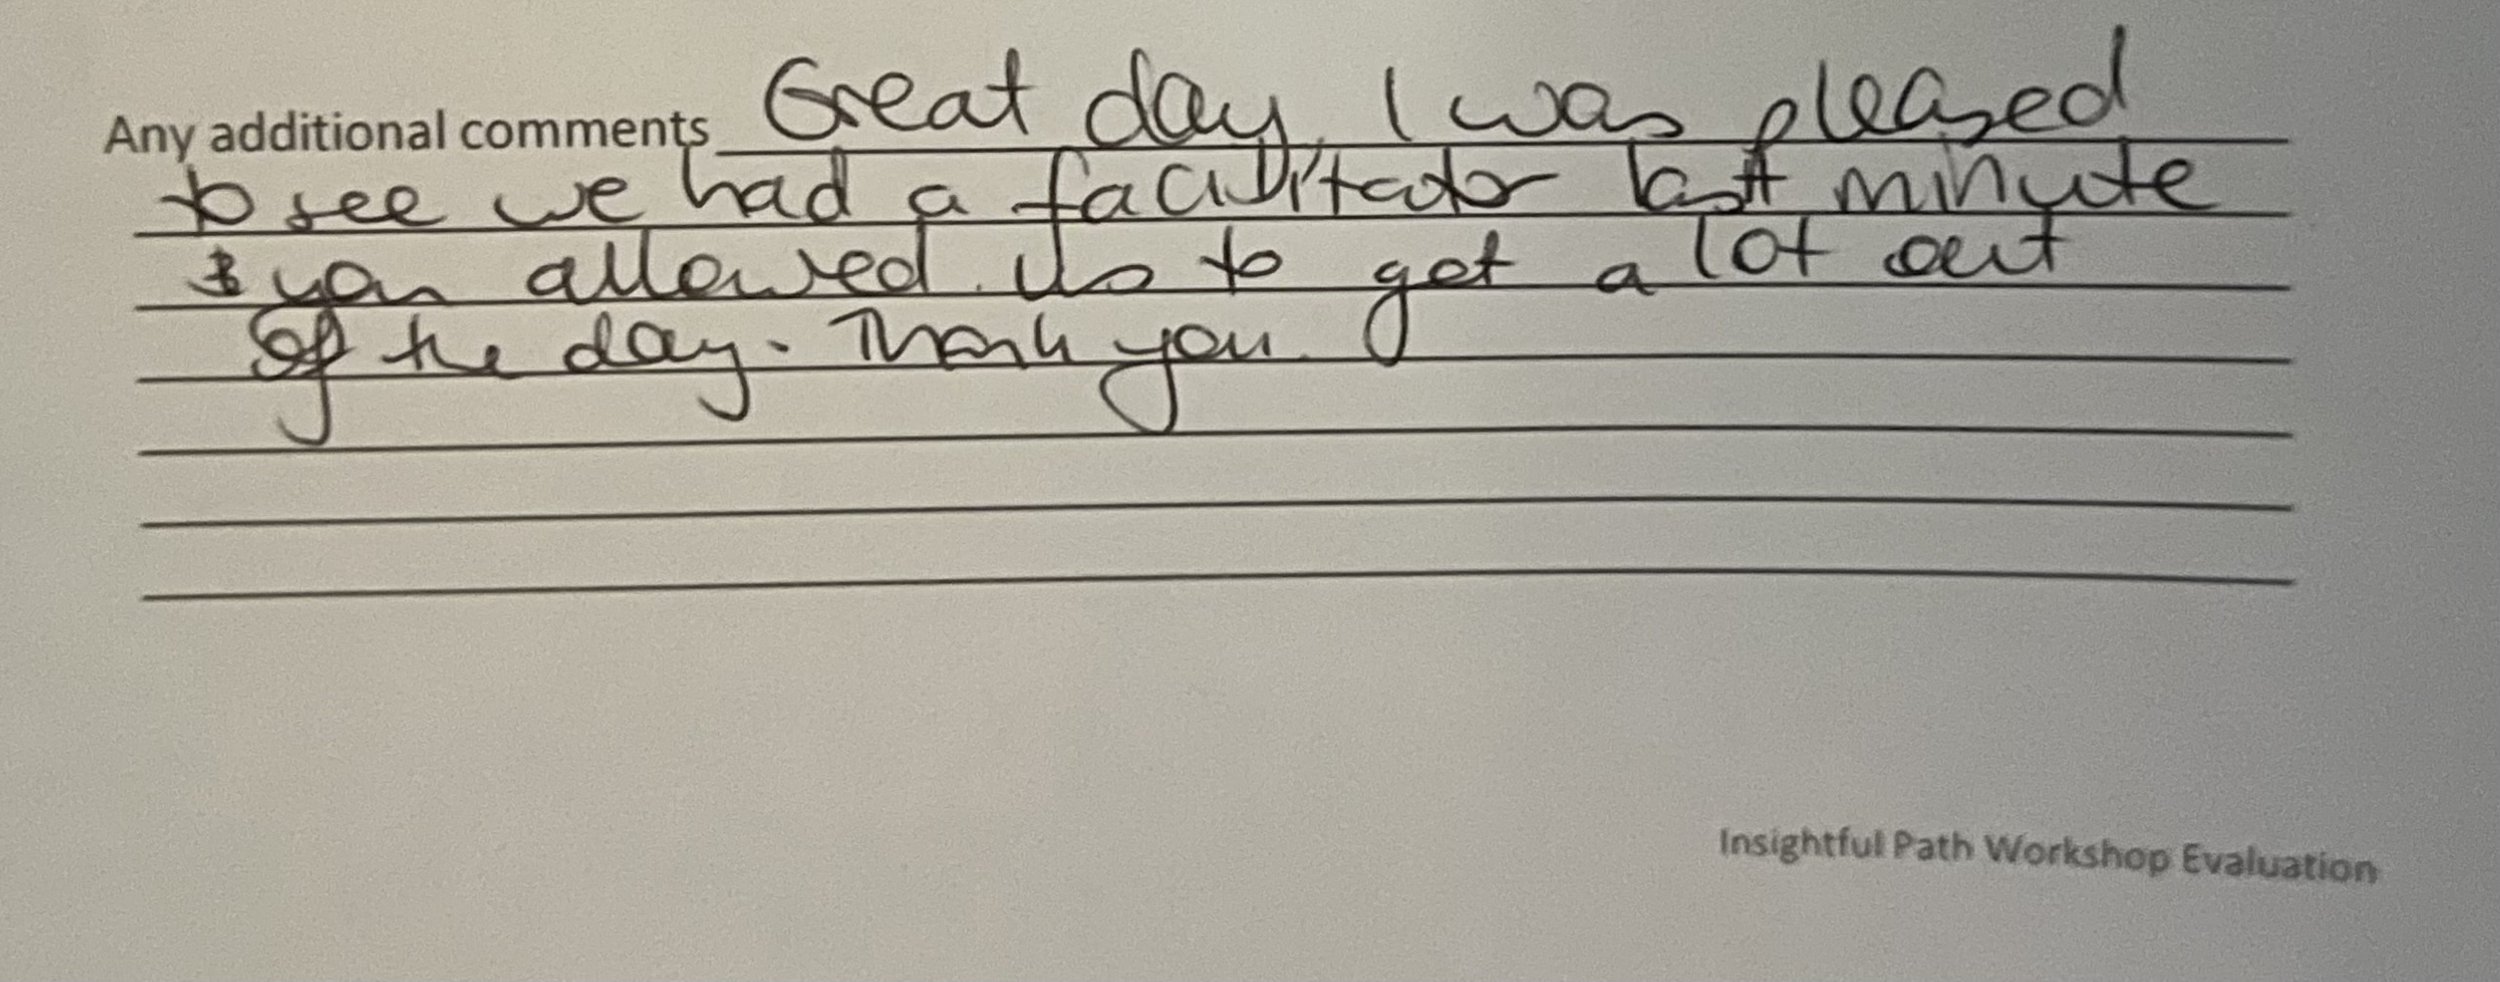 Any additional comments Great day, I was pleased
to see we had a facilitator last minute
& you allowed us to get a lot out
of the day. Thank you.
Insightful Path Workshop Evaluation